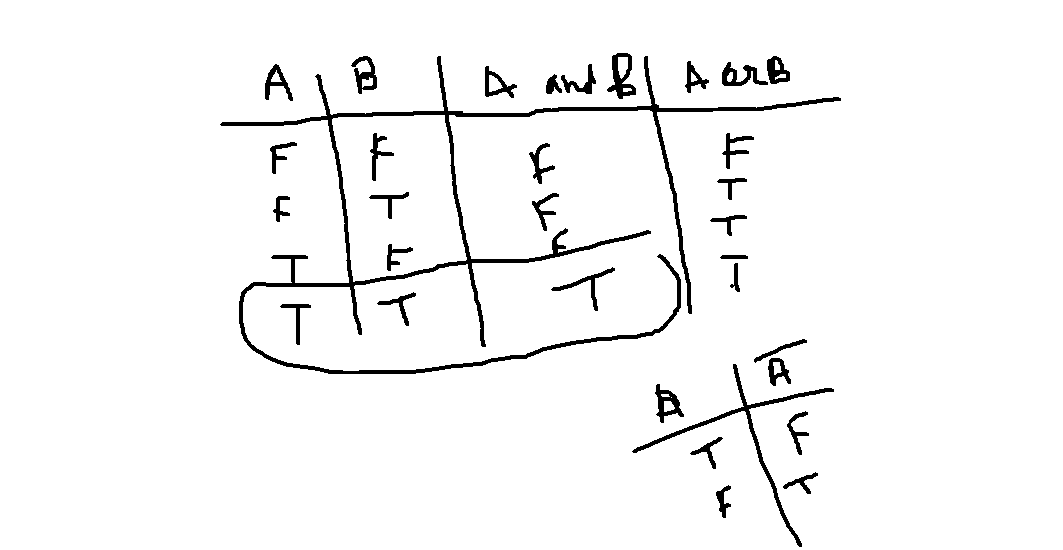 A B A and B A or B
F F F F
F T F T
T F F T
T T T T
A A̅
T F
F T